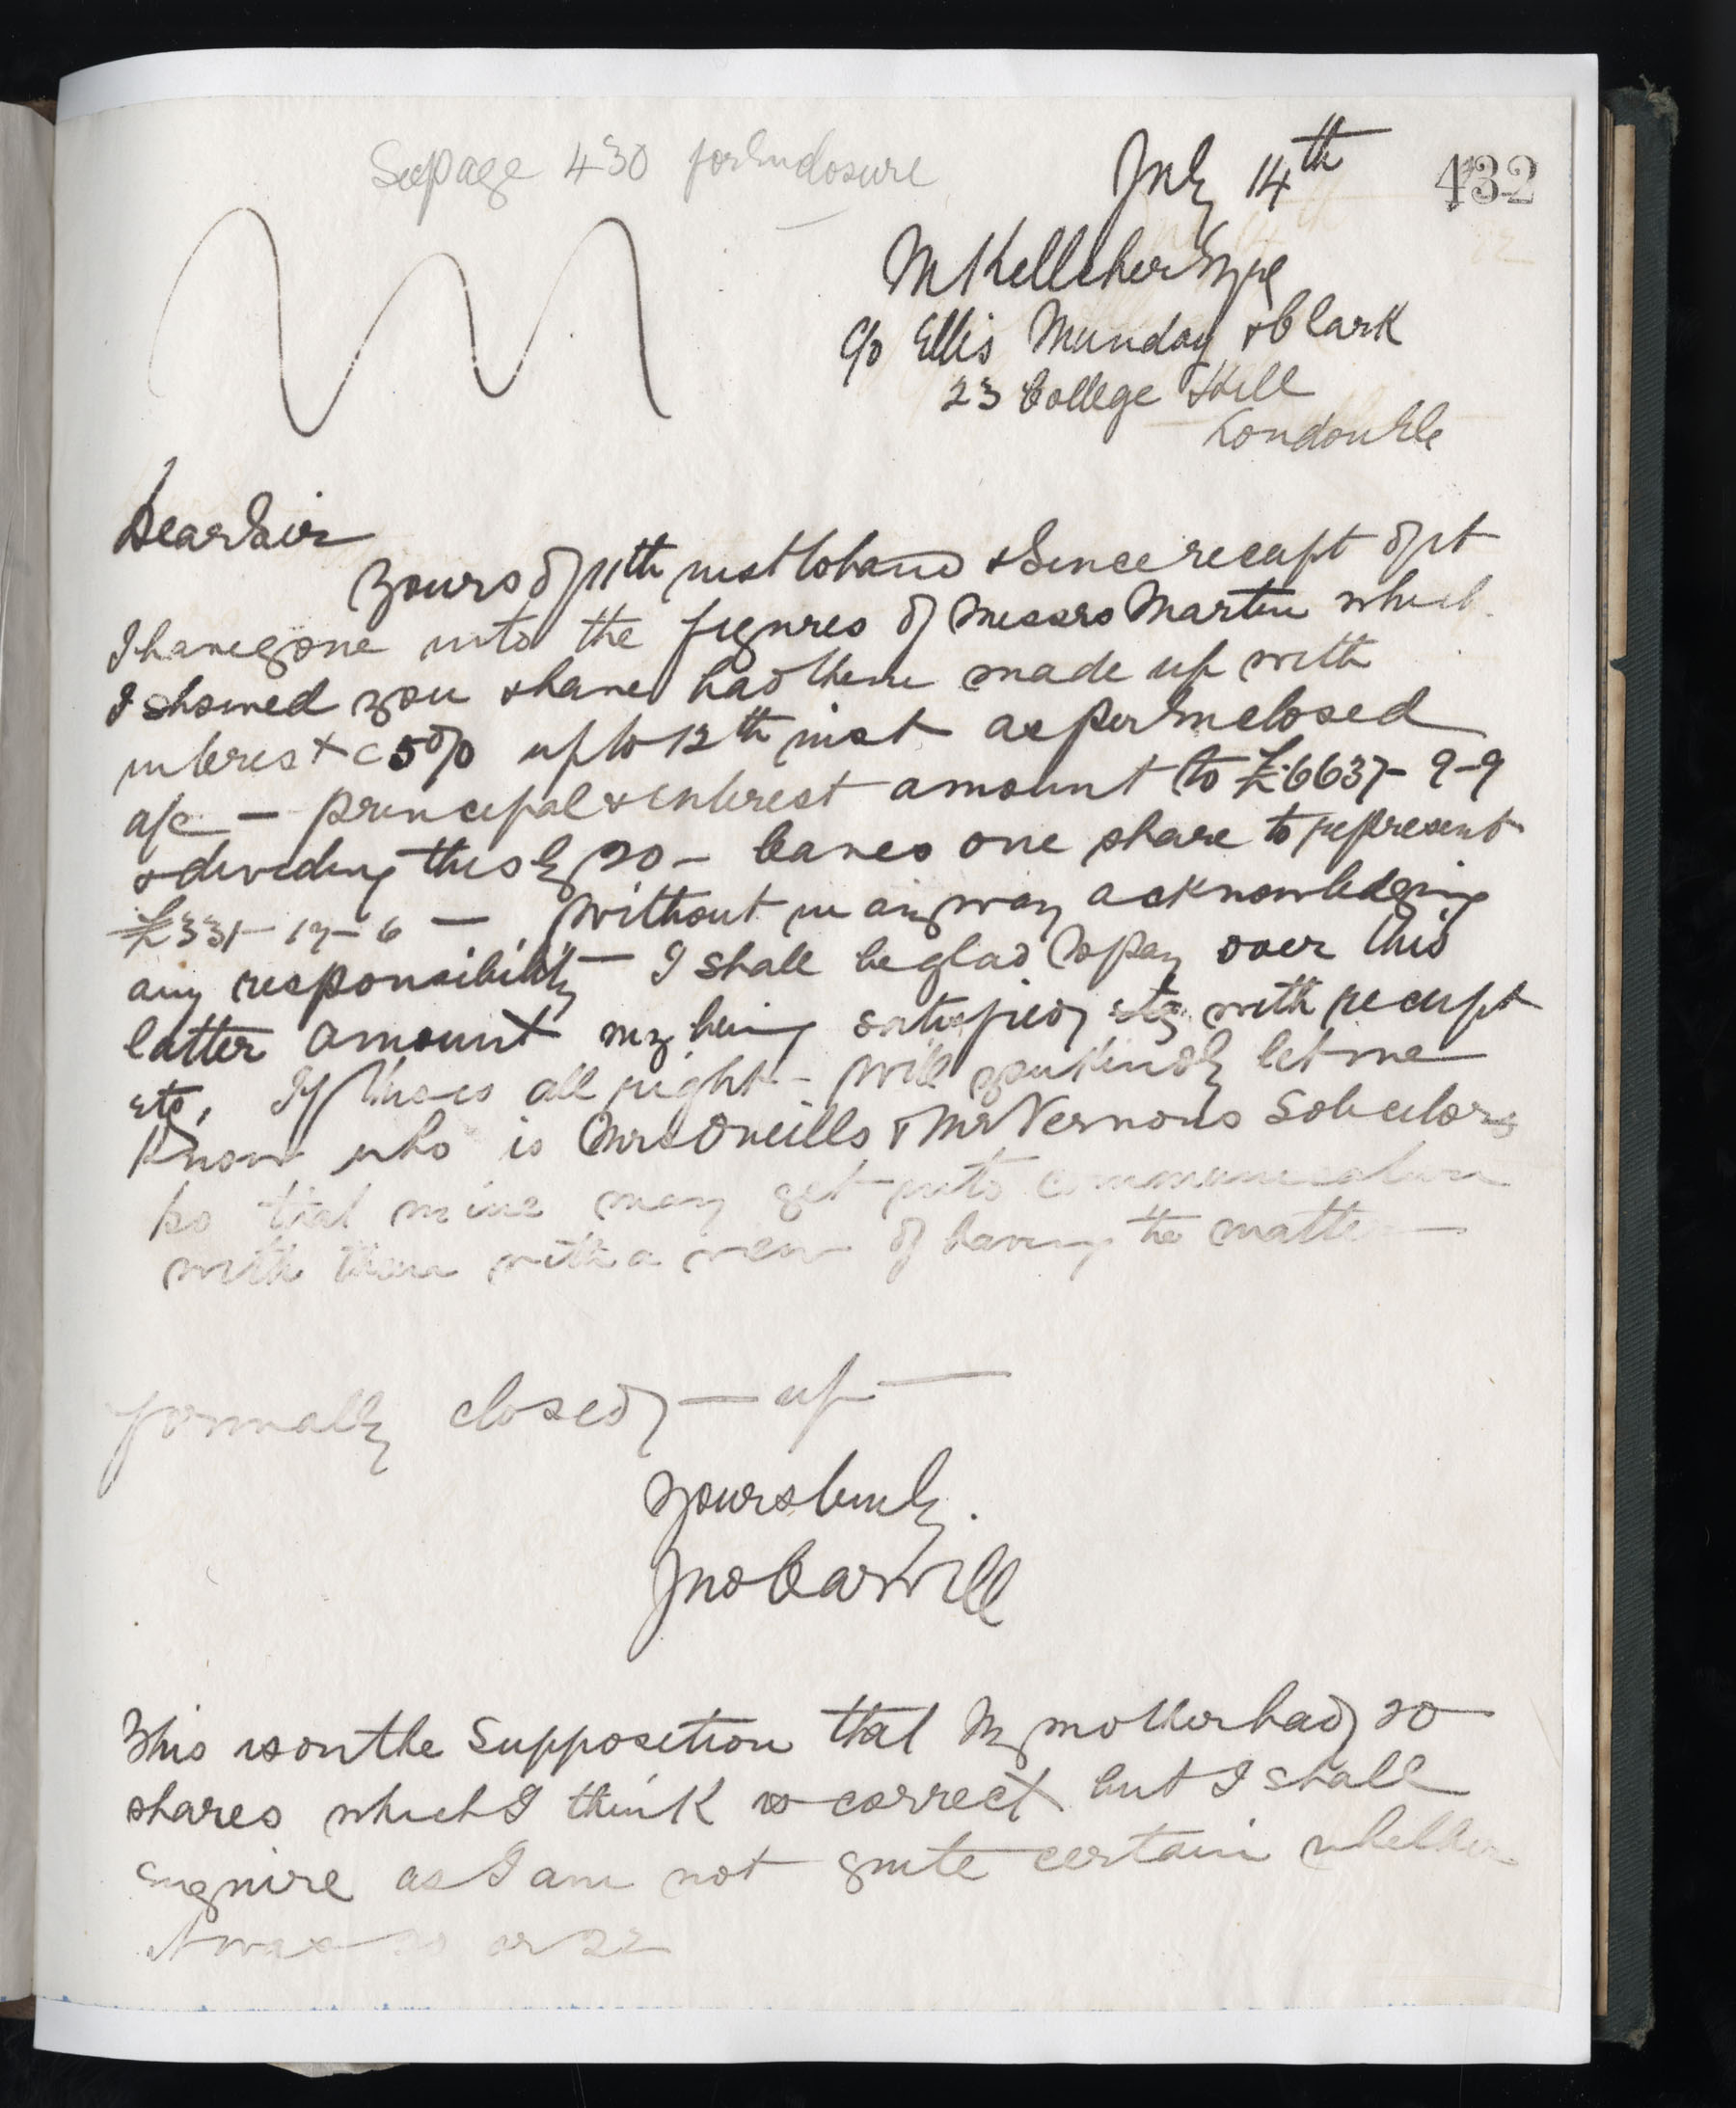 See page 430 for Enclosure
July 14th
432
M Kelleher Esqre
c/o Ellis Munday & Clark
23 College Hill
London E.C.
Dear Sir
Yours of 11th inst to hand & Since receipt of it
I have gone into the figures of Messrs Martin which
I showed you & have had them made up with
interest @ 5% up to 12th inst as per Enclosed
a/c — principal & interest amount to £6637-9-9
& dividing this by 20 — leaves one share to represent
£331-17-6 — Without in any way acknowledging
any responsibility — I shall be glad to pay over this
latter amount my being satisfied etc with receipt
etc, If this is all right — will you kindly let me
Know who is Mrs Oneills & Mr Vernons Solicitors
so that mine may get into communication
with them with a view of having the matter —
formally closed — up —
Yours truly.
Jno Carvill
This is on the Supposition that My mother had 20
shares which I think is correct but I shall
enquire as I am not quite certain whether
it was 20 or 22